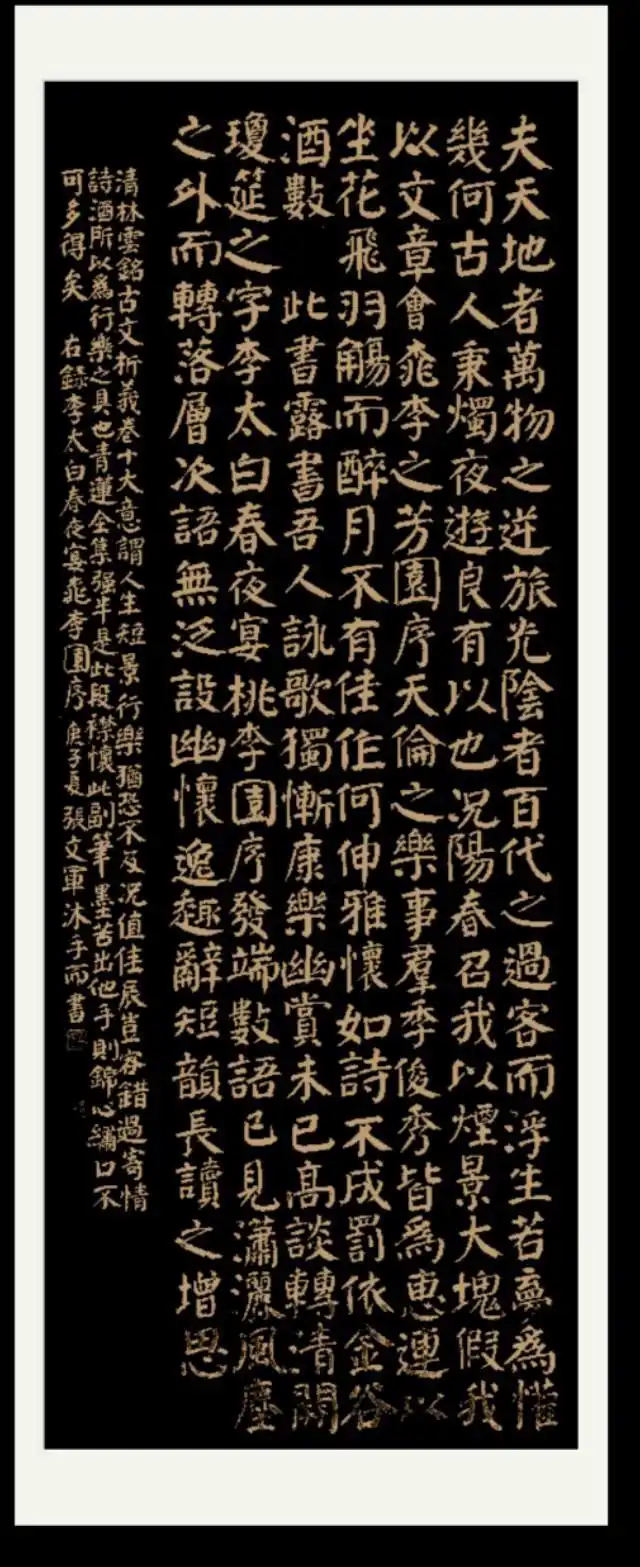 夫天地者萬物之逆旅光陰者百代之過客而浮生若夢為懽
幾何古人秉燭夜遊良有以也况陽春召我以煙景大塊假我
以文章會桃李之芳園序天倫之樂事羣季俊秀皆為惠連以
坐花飛羽觴而醉月不有佳作何伸雅懷如詩不成罰依金谷
酒數 此書露書吾人詠歌獨慚康樂幽賞未已高談轉清開
瓊筵之字李太白春夜宴桃李園序發端數語已見瀟灑風塵
之外而轉落層次語無泛設幽懷逸趣辭短韻長讀之增思
清林雲銘古文析義卷十大意謂人生短景行樂猶恐不及况值佳辰豈容錯過寄情
詩酒所以為行樂之具也青蓮全集强半是此段襟懷此副筆墨苦出他手則錦心繡口不
可多得矣 右錄李太白春夜宴桃李園序庚子夏張文軍沐手而書